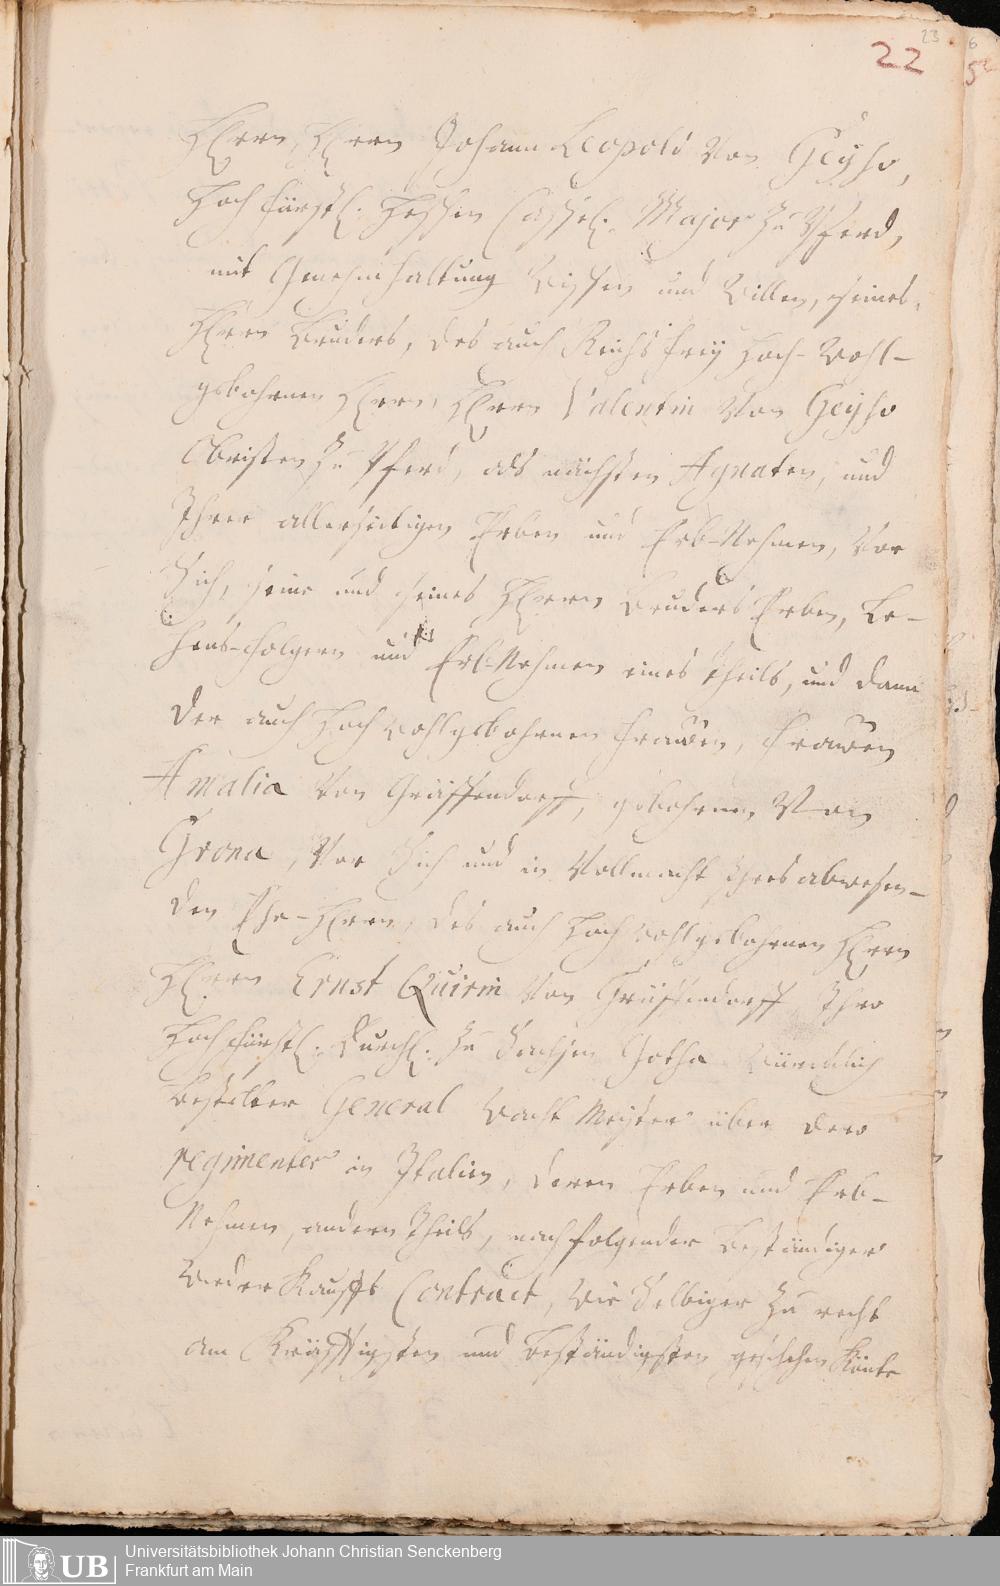 23
6
22
52
Herrn, Herrn Johann Leopold Von Geyso,
Hoch fürstl. Hessen Cassel. Major zu Pferd,
mit Genehmhaltung Wissen und Willen, seines
Herrn Bruders, des auch Reichs frey Hoch-Wohl-
gebohrnen Herrn, Herrn Valentin Von Geyso
Obristen zu Pferd, als nächsten Agnaten, und
Ihrer allerseitigen Erben und Erb-Nehmen, Vor
Sich, seine und seines Herrn Bruders Erben, Le-
hens-folgern und Erb-Nehmen eines theils, und dann
der auch Hoch Wohlgebohrnen Frauen, Frauen
Amalia Von Gräffendorff, gebohrnen Von
Grona, Vor Sich und in Vollmacht Ihres abwesen-
den Ehe-Herrn, des auch Hoch Wohlgebohrnen Herrn
Herrn Ernst Quirin Von Gräffendorff Ihro
Hoch fürstl. Durchl. zu Sachsen Gotha Würcklich
bestelter General Wacht Meister über dero
regimenter in Italien, deren Erben und Erb-
Nehmen, andern Theils, nachfolgender beständiger
Wieder Kauffs Contract, Wie Selbiger zu recht
am Kräfftigsten und beständigsten geschehen Könte
UB
Universitätsbibliothek Johann Christian Senckenberg
Frankfurt am Main